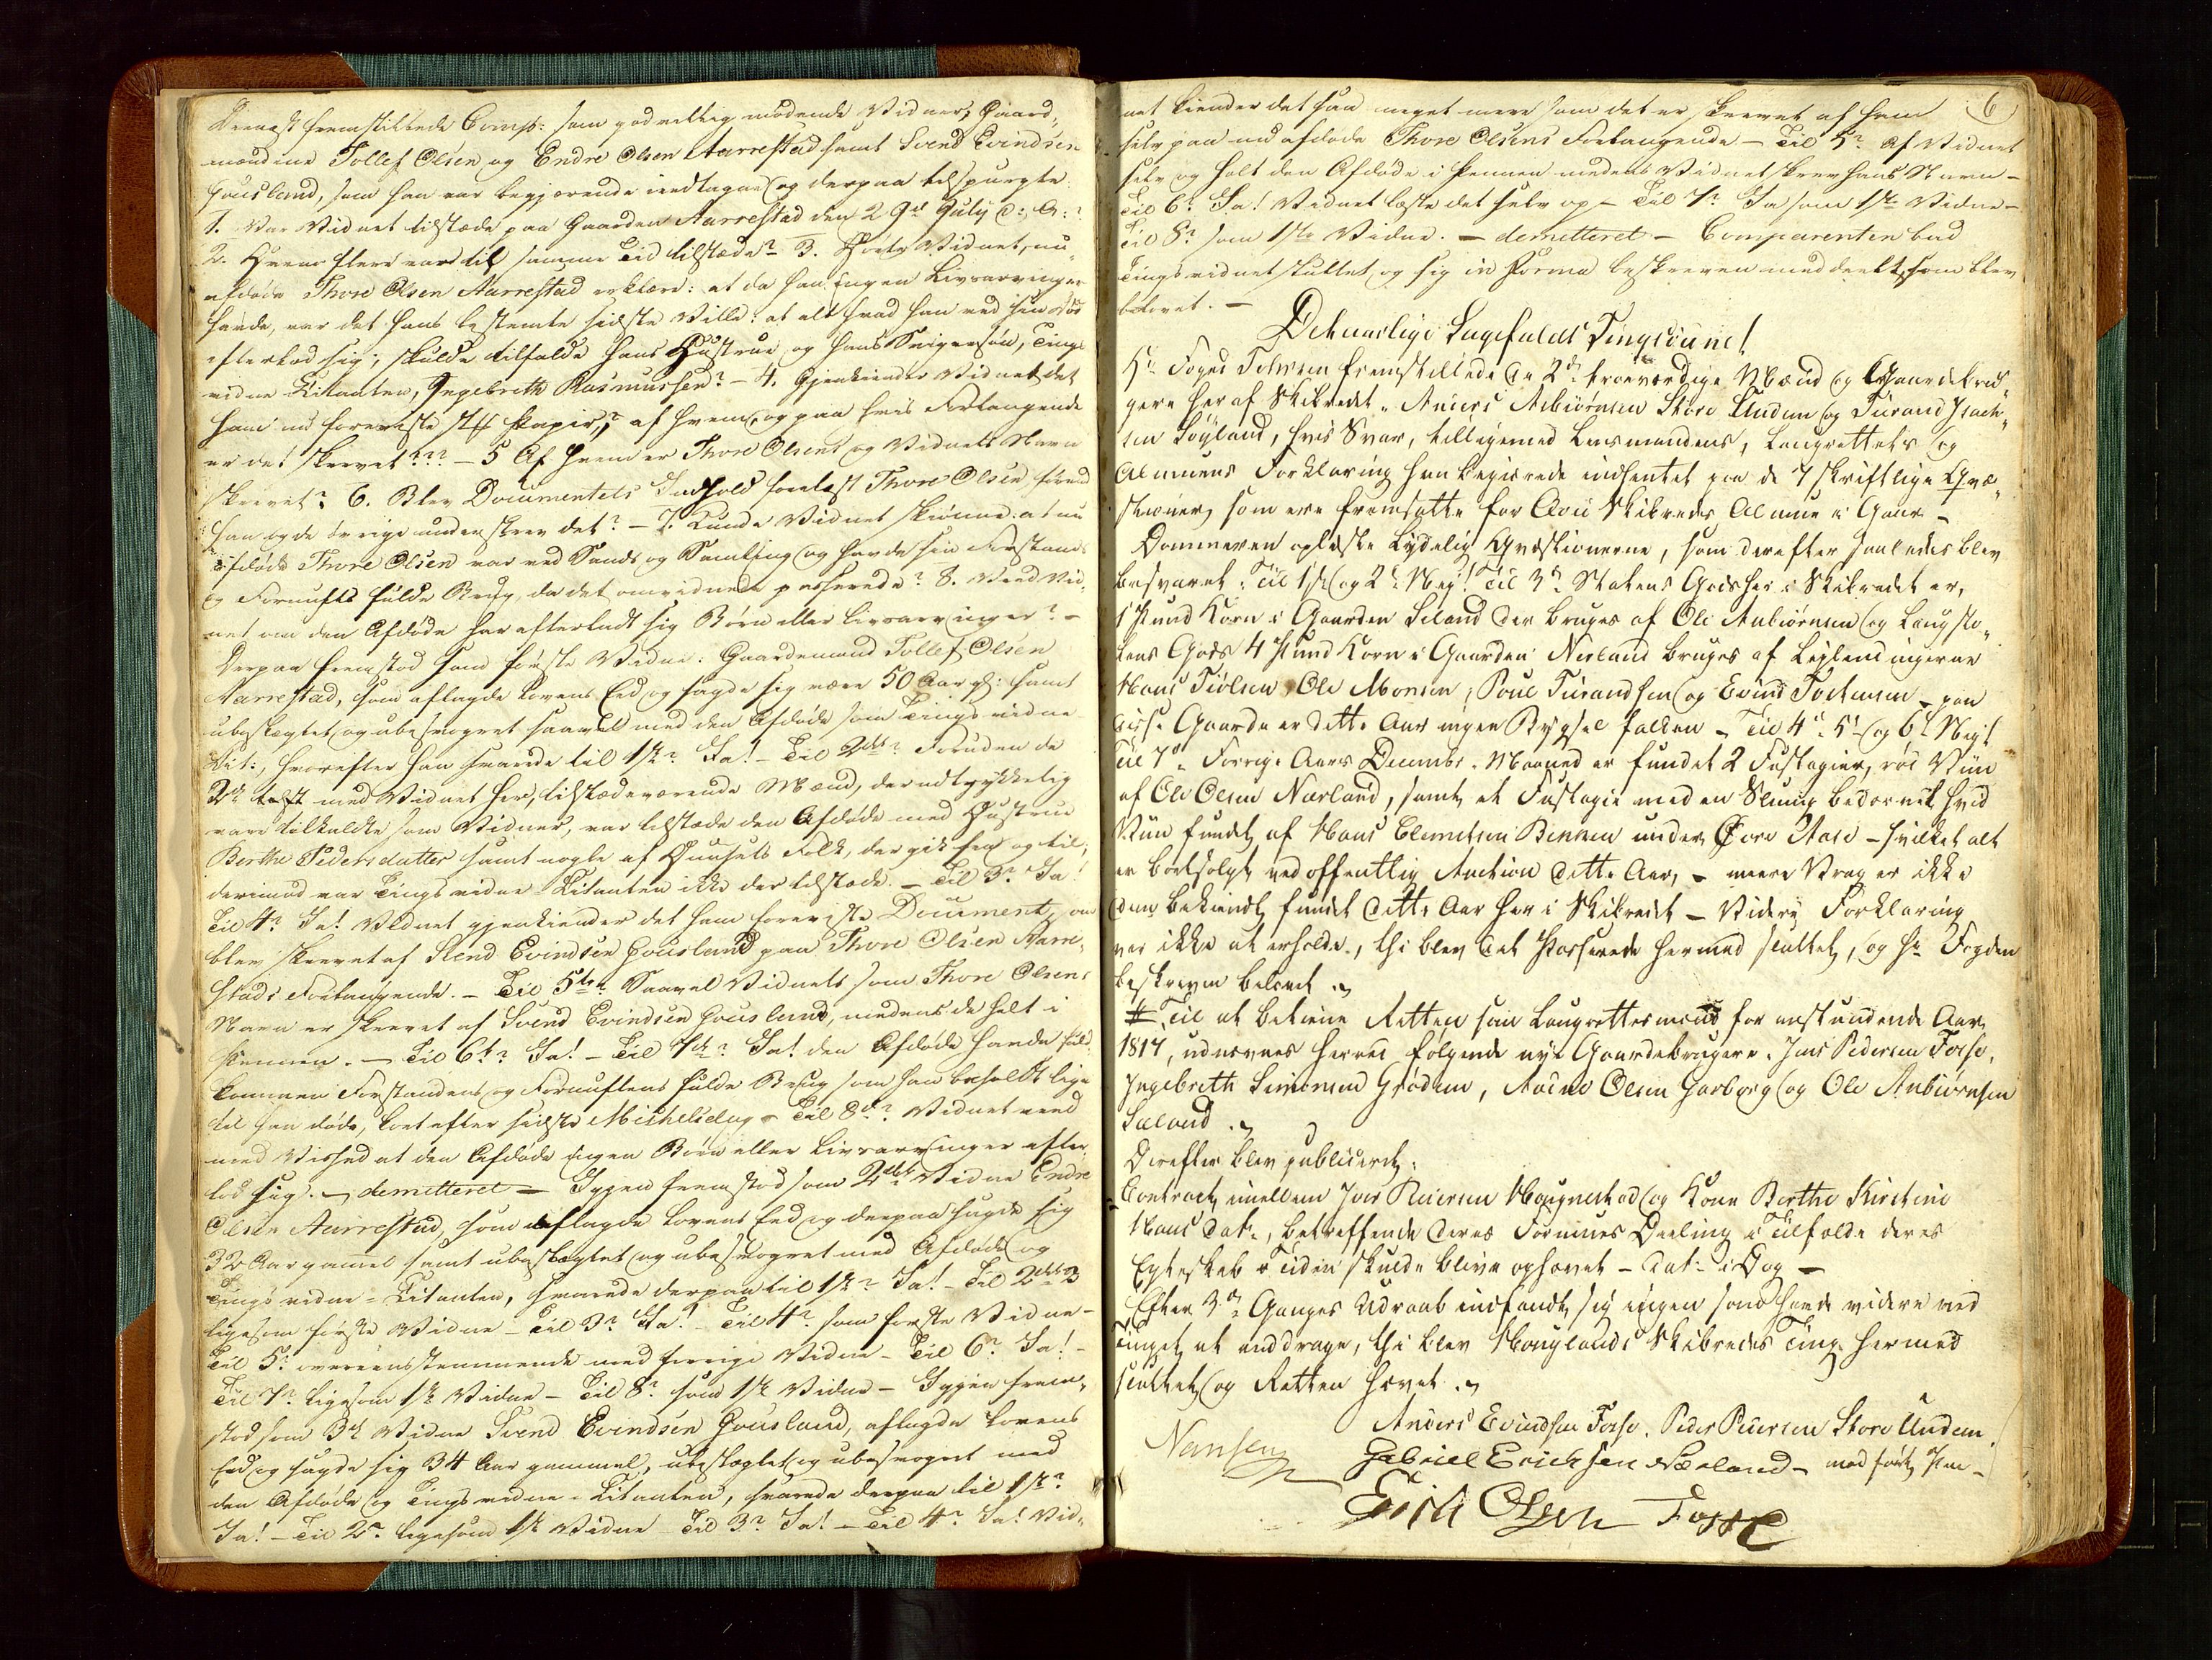 Dernæst fremstillede Comp: som godvillig mødende Vidner, Gaard,
mændene Tollef Olsen og Endre Olsen Aarrestad samt Svend Evindsen
Housland, som han var begjærende eedtagne og derpaa tilspurgte.
1. Var Vidnet tilstæde paa Gaarden Aarrestad den 29de July d: A:?
2. Hvem flere var til samme Tid tilstæde? 3. Hørte Vidnet, nu
afdøde Thore Olsen Aarrestad erklære: at da han ingen Livsarvinger
havde, var det hans bestemte sidste Villie: at alt hvad han ved sin Død
efterlod sig, skulde tilfalde hans Hustrue og hans Svigersøn, Tings
vidne Citanten, Ingebreth Rasmussen? - 4. Gjenkiender Vidnet det
ham nu foreviste Papir,? af hvem, og paa hvis Forlangende
er det skrevet??? - 5 Af hvem er Thore Olsens og Vidnets Navn
skrevet? 6. Blev Documentets Indhold forelæst Thore Olsen førend
han og de øvrige underskrev det? - 7. Kunde Vidnet skiønne at nu
afdøde Thore Olsen var ved Sands og Samling og havde sin Forstands
og Fornufts fulde Brug, da det omvidnede passerede? 8. Veed Vid,
net om den Afdøde har efterladt sig Børn eller Livsarvinger? -
Derpaa fremstod som første Vidne: Gaardmand Tollef Olsen
Aarrestad, som aflagde Lovens Eed og sagde sig være 50 Aar gl: samt
ubeslægtet og ubesvogret saavel med den Afdøde som Tings vidne
Cit:, hvorefter han svarede til 1ste? Ja! - Til 2det? Foruden de
2de med Vidnet her, tilstædeværende Mænd, der udtrykkelig
vare tilkaldte som Vidner, var tilstæde den Afdøde med Hustrue
Berthe Pedersdatter samt nogle af Husets Folk, der gik fra og til,
derimod var Tings vidne Citanten ikke der tilstæde. - Til 3? Ja!
Til 4? Ja! Vidnet gjenkiender det ham foreviste Document, om
blev skrevet af Svend Evindsen Housland paa Thore Olsen Aarre,
stads Forlangende. - Til 5te? Saavel Vidnets som Thore Olsens
Navn er skrevet af Svend Evindsen Housland, medens de holt i
Pennen. - Til 6te? Ja! - Til 7de? Ja! den Afdøde havde fuld,
kommen Forstandens og Fornuftens fulde Brug som han beholdt lige
til han døde, kort efter sidste Michelsdag - Til 8de? Vidnet veed
med Vished at den Afdøde ingen Børn eller Livsarvinger efter,
lod sig. - demitteret - Igjen fremstod som 2det Vidne Endre
Olsen Aarrestad, som aflagde Lovens Eed og derpaa sagde sig
32 Aar gammel samt ubeslægtet og ubesvogret med Afdøde og
Tings vidne - Citanten, svarede derpaa til 1ste? Ja! - Til 2det?
ligesom første Vidne - Til 3? Ja! - Til 4? som første Vidne -
Til 5? overeensstemmende med forrige Vidne - Til 6? Ja! -
Til 7? ligesom 1ste Vidne - Til 8? som 1ste Vidne - Igjen frem,
stod som 3de Vidne Svend Evindsen Housland, aflagde Lovens
Eed og sagde sig 34 Aar gammel, ubeslægtet og ubesvogret med
den Afdøde og Tings vidne - Citanten, svarede derpaa til 1ste?
Ja! - Til 2? ligesom 1ste Vidne - Til 3? Ja! - Til 4? Ja! Vid,
6
net kiender det saa meget mere som det er skrevet af ham
selv paa nu afdøde Thore Olsens Forlangende - Til 5? Af Vidnet
selv og holt den Afdøde i Pennen medens Vidnet skrev hans Navn -
Til 6? Ja! Vidnet læste det selv op - Til 7? Ja som 1ste Vidne -
Til 8? som 1ste Vidne. - demitteret - Comparenten bad
Tingsvidnet sluttet og sig in Forma beskreven meddeelt, som blev
belovet. -
Det aarlige Sagefalds Tingsvidne!
Hr Foged fremstillede de 2de troeværdige Mænd og Gaardebru,
gere her af Skibredet, Anders Asbiørnsen Store Undem og Tørand Isach,
sen Høyland, hvis Svar, tilligemed Lensmandens, Laugrettets og
Almuens Forklaring han begiærede indhentet paa de 7 skriftlige Qvæ,
stioner, som ere fremsatte for Skibredes Almue i Gaar -
Dommeren oplæste lydelig Qvæstionerne, som derefter saaledes blev
besvaret: Til 1ste og 2de Nej! Til 3die Statens Gods her i Skibredet er,
1 Pund Korn i Gaarden Seland der bruges af Ole Anbiørnsen og Laugsto,
lens Gods 4 Pund Korn i Gaarden Nærland bruges af Leylendingerne
Hans Tiølsen, Ole Monsen, Poul Tørandsen og Evind Torkensen - paa
disse Gaarde er dette Aar ingen Bygsel falden - Til 4de 5te og 6te Nej!
Til 7de Forrige Aars Decembr. Maaned er fundet 2 Fustagier, rød Viin
af Ole Olsen Nærland, samt et Fustagie med en Slump bedærvet hvid
Viin fundet af Hans Clemetsen under Øvre - hvilket alt
er bortsolgt ved offentlig Auction dette Aar, - meere Vrag er ikke
dem bekiendt fundet dette Aar her i Skibredet - Videre Forklaring
var ikke at erholde, thi blev det Passerede hermed sluttet, og Hr Fogden
beskreven belovet.
Til at betiene Retten som Laugrettesmænd for anstundende Aar
1817, udnævnes herved følgende nye Gaardebrugere. Jens Pedersen Fosse,
Ingebreth Simonsen Grødem, Aadne Olsen Garborg og Ole Anbiørnsen
Sæland.
Derefter blev publiceret:
Contract imellem Iver Reiersen Haugnestad og Kone Berthe Kirstine
Hans dat:, betreffende deres Formues Deeling i Tilfælde deres
Egteskab i Tiden skulde blive ophævet - dat: i Dag -
Efter 3de Ganges Udraab indfandt sig ingen som havde videre ved
Tinget at anddrage, thi blev Hauglands Skibredes Ting hermed
sluttet og Retten hævet.
Anders Evindsen Fosse. Peder Pedersen Store Undem.
Nansen Gabriel Erichsen Nærland - med ført Pen -
Erich Olsen Fosse